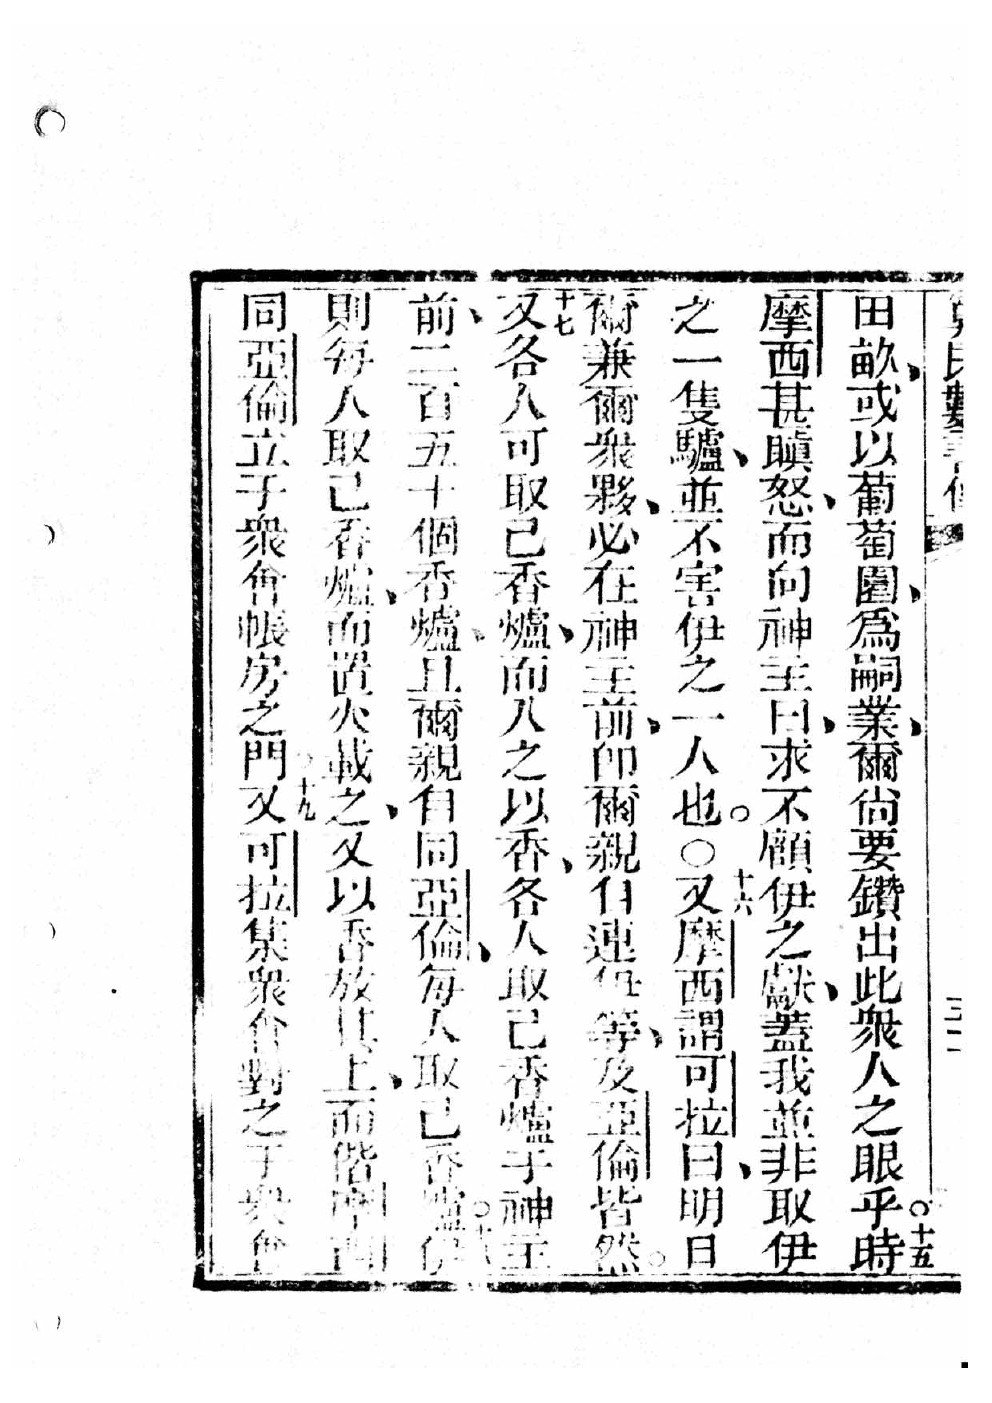 田畝、或以葡萄園、爲嗣業、爾尚要鑽出此衆人之眼乎○十五時
摩西甚瞋怒、而向神主曰、求不顧伊之獻、蓋我並非取伊
之一隻驢、並不害伊之一人也。○十六又摩西謂可拉曰、明日
爾兼爾衆夥、必在神主前、卽爾親自連伊等、及亞倫皆然。
十七又各人可取己香爐、而入之以香、各人取己香爐于神主
前、二百五十個香爐、且爾親自同亞倫、每人取己香爐○十八伊
則每人取己香爐、而置火載之、又以香放其上、而偕摩西
同亞倫立于衆會帳房之門○十九又可拉集衆會對之于衆會